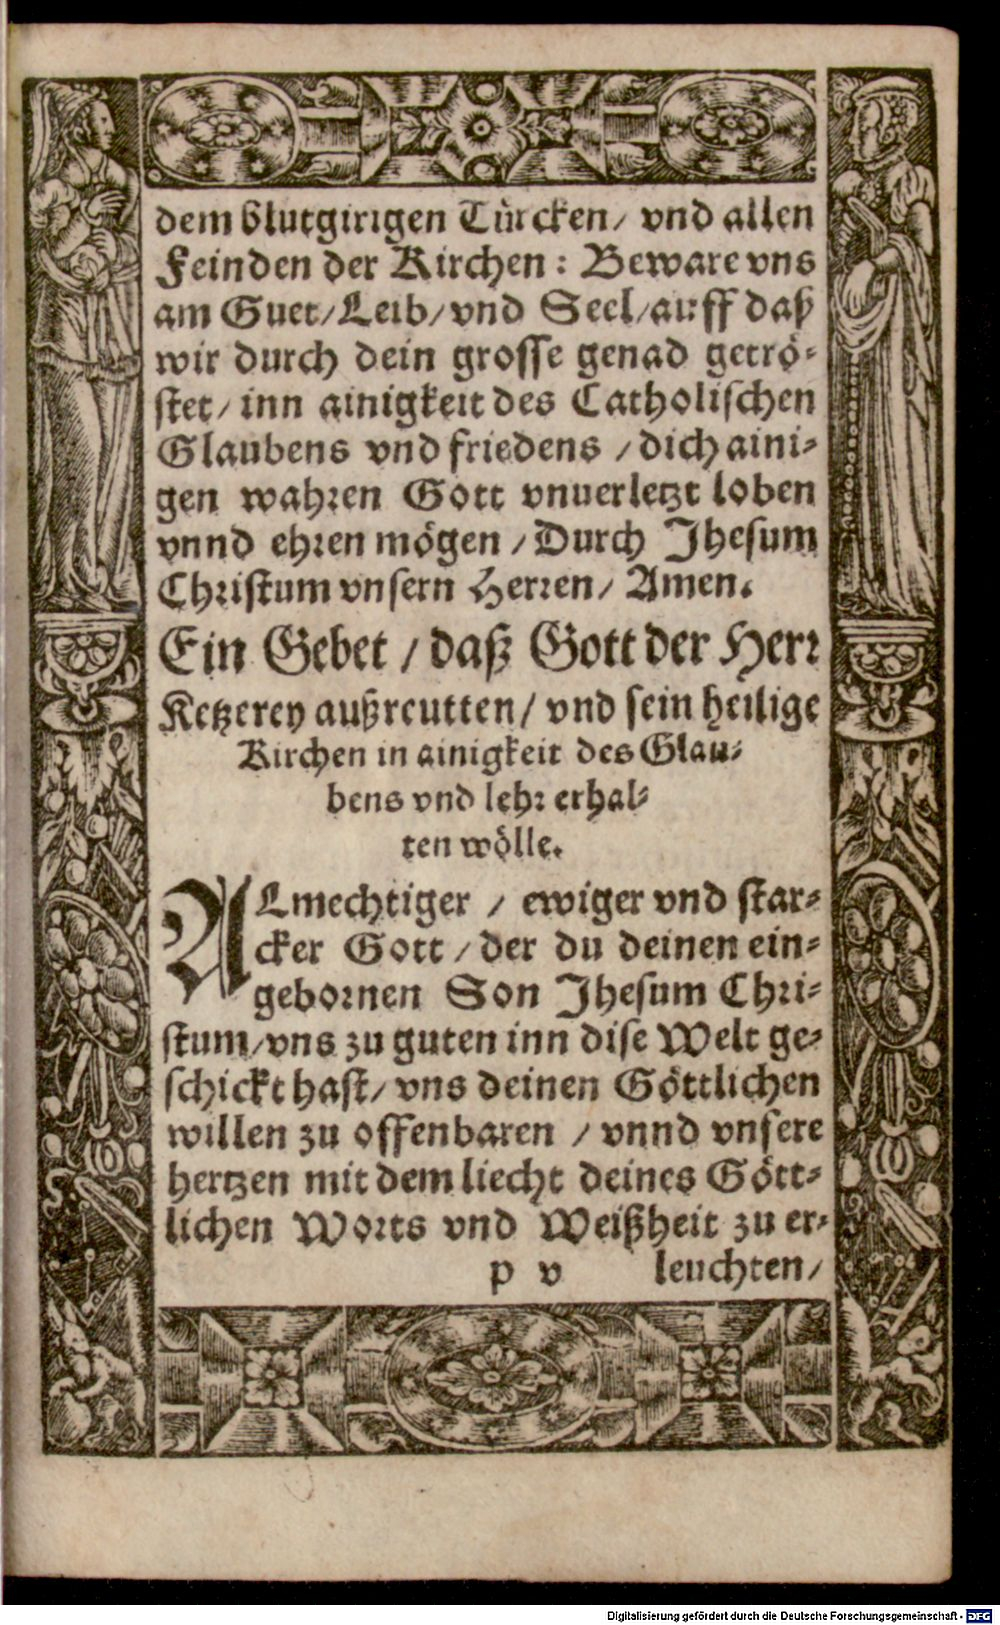 dem blutgirigen Türcken/ vnd allen
Feinden der Kirchen: Beware vns
am Guet/Leib/vnd Seel/auff daß
wir durch dein grosse genad getrö-
stet/ inn ainigkeit des Catholischen
Glaubens vnd friedens /dich aini-
gen wahren Gott vnuerletzt loben
vnnd ehren mögen /Durch Jhesum
Christum vnsern Herren/ Amen.
Ein Gebet / daß Gott der Herr
Ketzerey außreutten/ vnd sein heilige
Kirchen in ainigkeit des Glau-
bens vnd lehr erhal-
ten wölle.
ALmechtiger / ewiger vnd star-
cker Gott /der du deinen ein-
gebornen Son Jhesum Chri-
stum/vns zu guten inn dise Welt ge-
schickt hast/ vns deinen Göttlichen
willen zu offenbaren / vnnd vnsere
hertzen mit dem liecht deines Gött-
lichen Worts vnd Weißheit zu er-
p v leuchten/
Digitalisierung gefördert durch die Deutsche Forschungsgemeinschaft - DFG